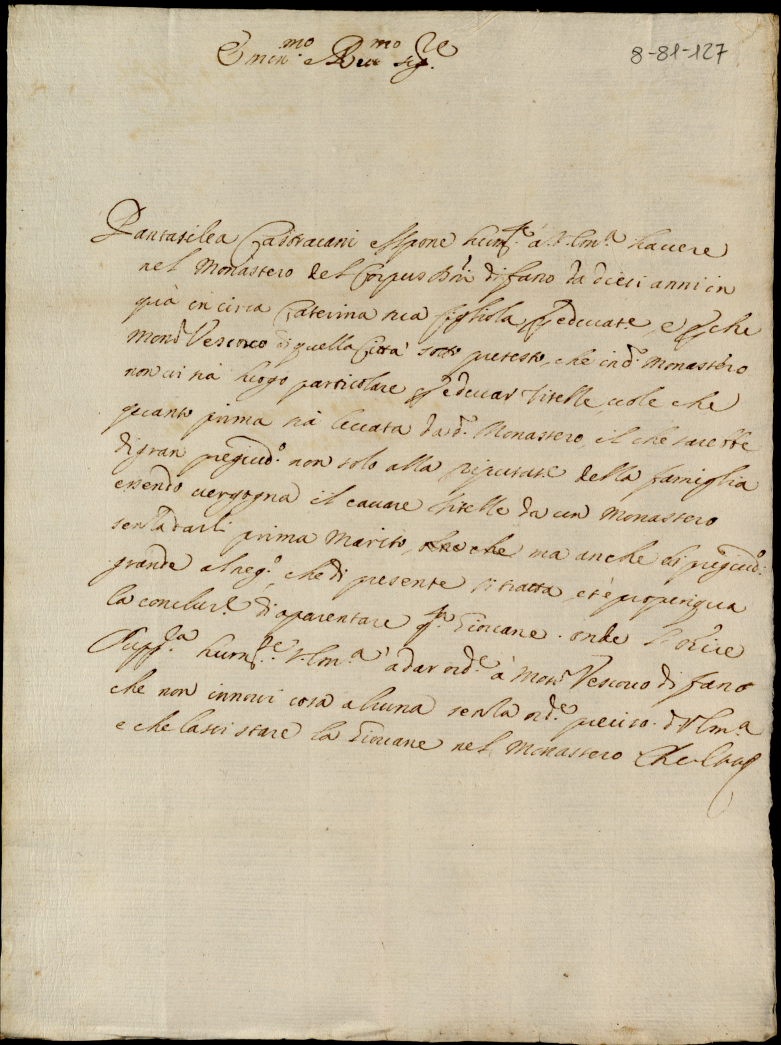 Emin.mo e Rev.mo sig.re
8-81-127
Pantasilea Castracani espone hum.te à V. Em.a havere
nel Monastero del Corpus Dñi di fano da dieci anni in
quà in circa Caterina sua figliola p educat.e, e p che
Mons.r Vescovo di quella Città sotto pretesto, che in d.o Monastero
non vi sia luogo particolare p educar Zitelle, vole che
quanto prima sia levata da d.o Monastero, il che sarebbe
di gran pregiud.o non solo alla riputat.e della famiglia
essendo vergogna il cavare Zitelle da un Monastero
senza darli prima Marito, che che ma anche di pregiud.o
grande al neg.o, che di presente si tratta, et è propinqua
la conclus.e di aparentare q.ta Giovane. onde l'Orice
supp.ca hum.te V. Em.a à dar ord.e à Mons.r Vescovo di fano
che non innovi cosa alcuna senza ord.e preciso di V. Em.a
e che lasci stare la Giovane nel Monastero Che